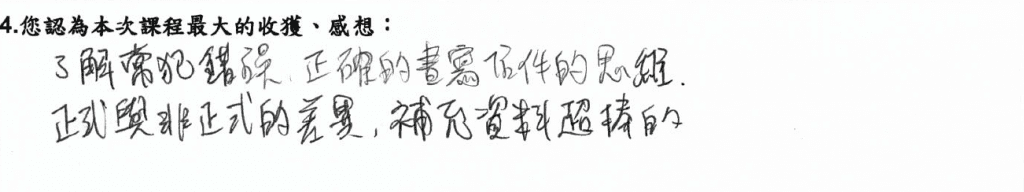 4.您認為本次課程最大的收獲、感想：
了解常犯錯誤、正確的書寫信件的思維.
正式與非正式的差異，補充資料超棒的